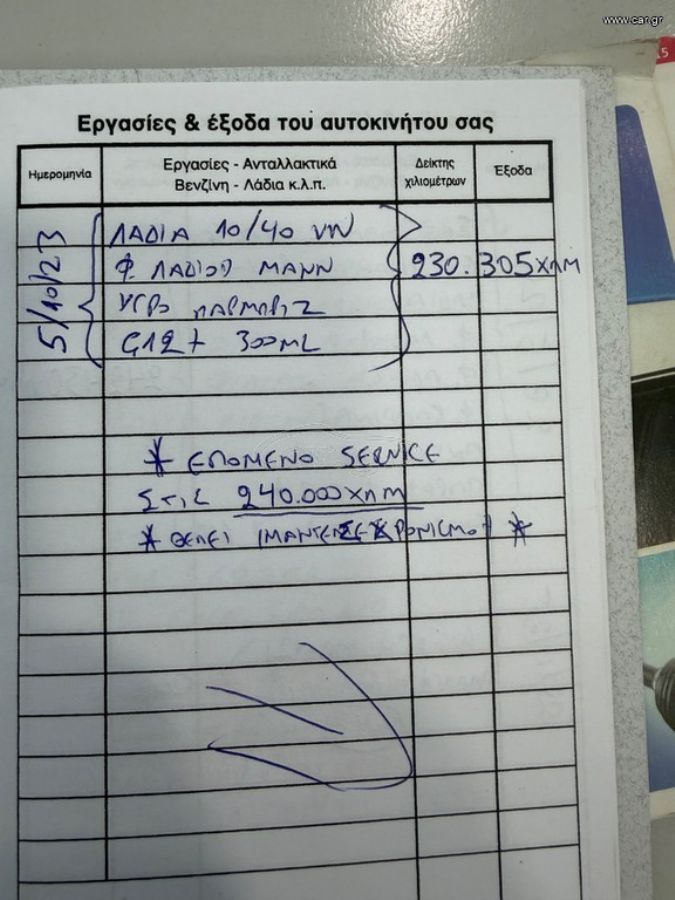 www.car.gr
15
Εργασίες & έξοδα του αυτοκινήτου σας
Ημερομηνία
Εργασίες - Ανταλλακτικά
Βενζίνη - Λάδια κ.λ.π.
Δείκτης
χιλιομέτρων
Έξοδα
5/10/23
ΛΑΔΙΑ 10/40 VW
Φ. ΛΑΔΙΟΥ ΜΑΝΝ 230.305ΧΛΜ
ΥΓΡΟ ΠΑΡΜΠΡΙΖ
G12+ 300ML
* ΕΠΟΜΕΝΟ SERVICE
ΣΤΙς 240.000ΧΛΜ
* ΘΕΛΕΙ ΙΜΑΝΤΕΣ ΧΡΟΝΙΣΜΟΥ *